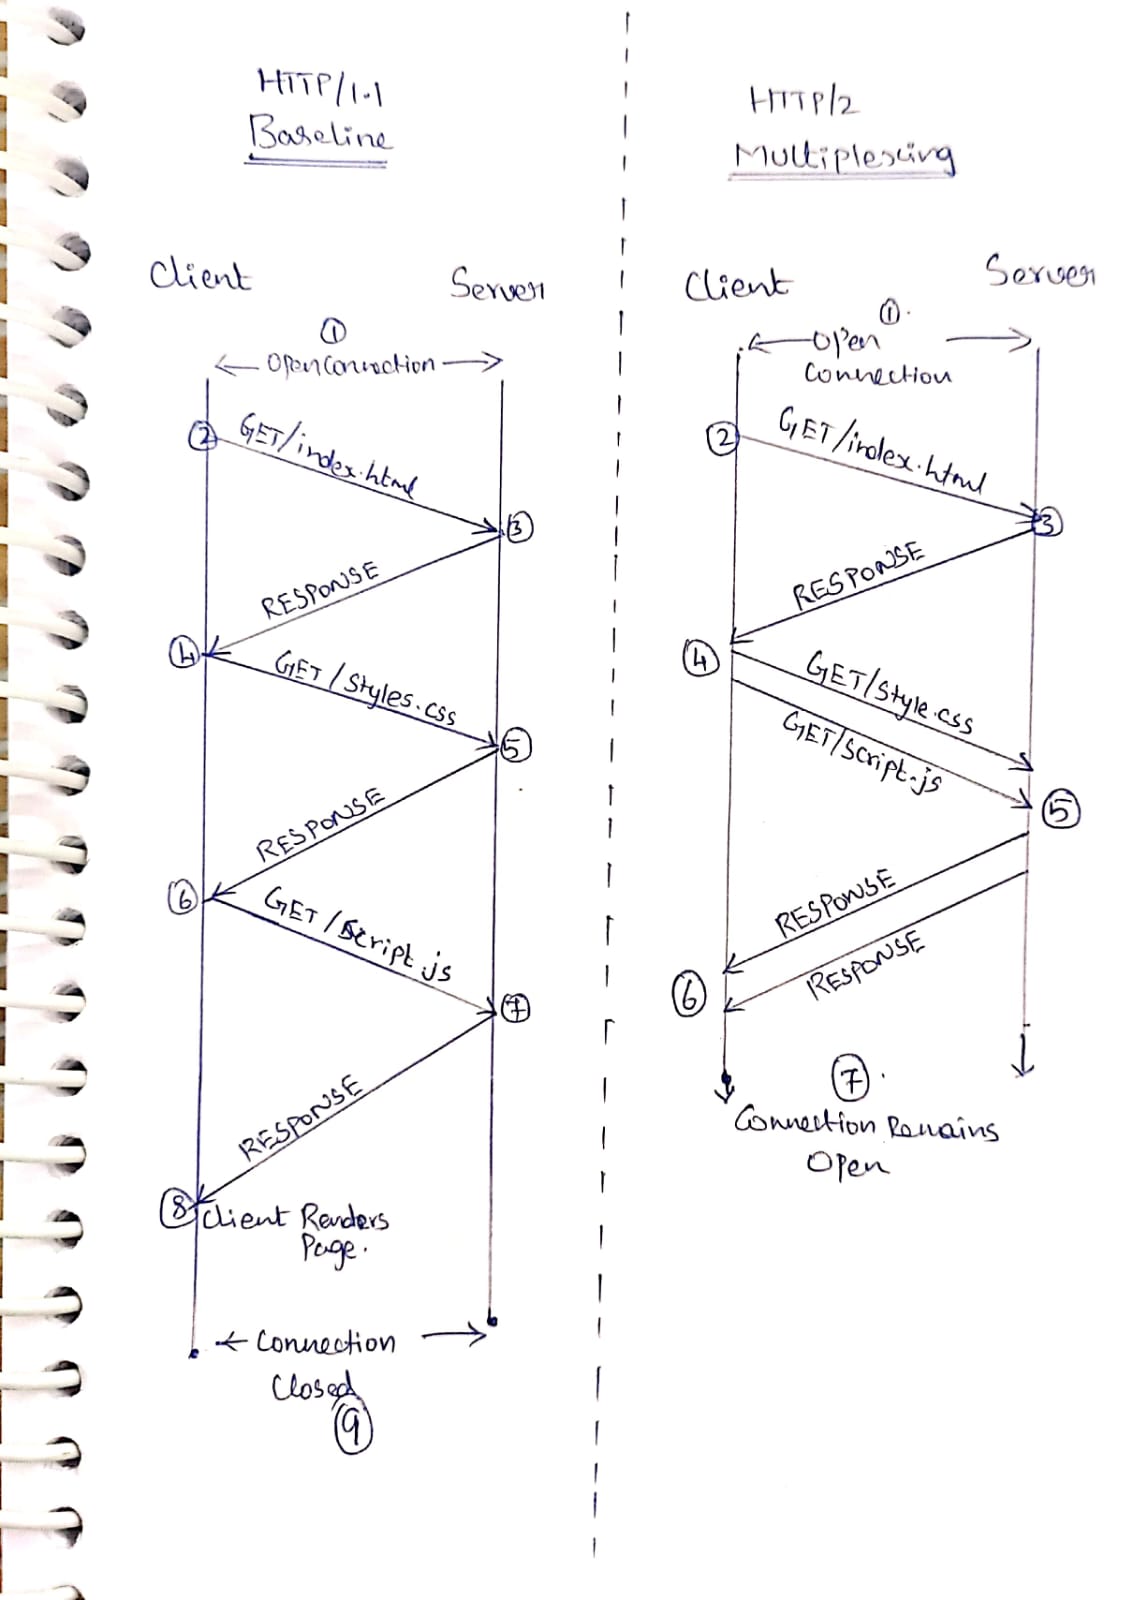 HTTP/1.1
Baseline
Client
Server
①
Open Connection
②
GET/index.html
③
RESPONSE
④
GET/Styles.css
⑤
RESPONSE
⑥
GET/Script.js
⑦
RESPONSE
⑧
Client Renders
Page.
Connection
Closed
⑨
HTTP/2
Multiplexing
Client
Server
①.
Open
Connection
②
GET/index.html
③
RESPONSE
④
GET/Style.css
GET/Script.js
⑤
RESPONSE
RESPONSE
⑥
⑦.
Connection Remains
Open